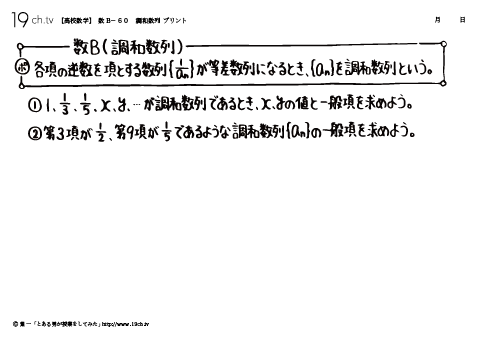 19 ch.tv 【高校数学】 数B-60 調和数列 プリント 月 日
数B(調和数列)
ポ 各項の逆数を項とする数列{1/an}が等差数列になるとき、{an}を調和数列という。
① 1, 1/3, 1/5, x, y, …が調和数列であるとき、x, yの値と一般項を求めよう。
② 第3項が1/2、第9項が1/5であるような調和数列{an}の一般項を求めよう。
© 葉一「とある男が授業をしてみた」http://www.19ch.tv